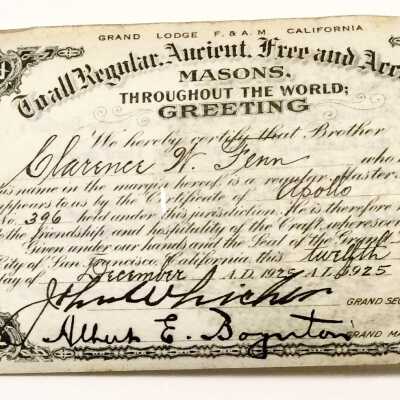 GRAND LODGE F. & A. M. CALIFORNIA
To all Regular, Ancient, Free and Acc
MASONS,
THROUGHOUT THE WORLD;
GREETING
We hereby certify that Brother
Clarence W. Fenn who
his name in the margin hereof, is a regular Master
appears to us by the Certificate of Apollo
No. 396 held under this jurisdiction. He is therefore
to the friendship and hospitality of the Craft, wheresoe
Given under our hands and the Seal of the Grand
City of San Francisco, California this Twelfth
day of December A.D. 1925 A.L. 5925
GRAND SEC
Albert E. Boynton GRAND MA